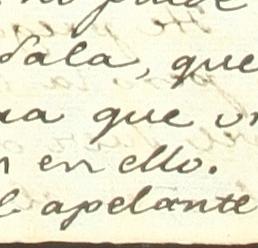 Sala, que
na que
n en ello.
apelante